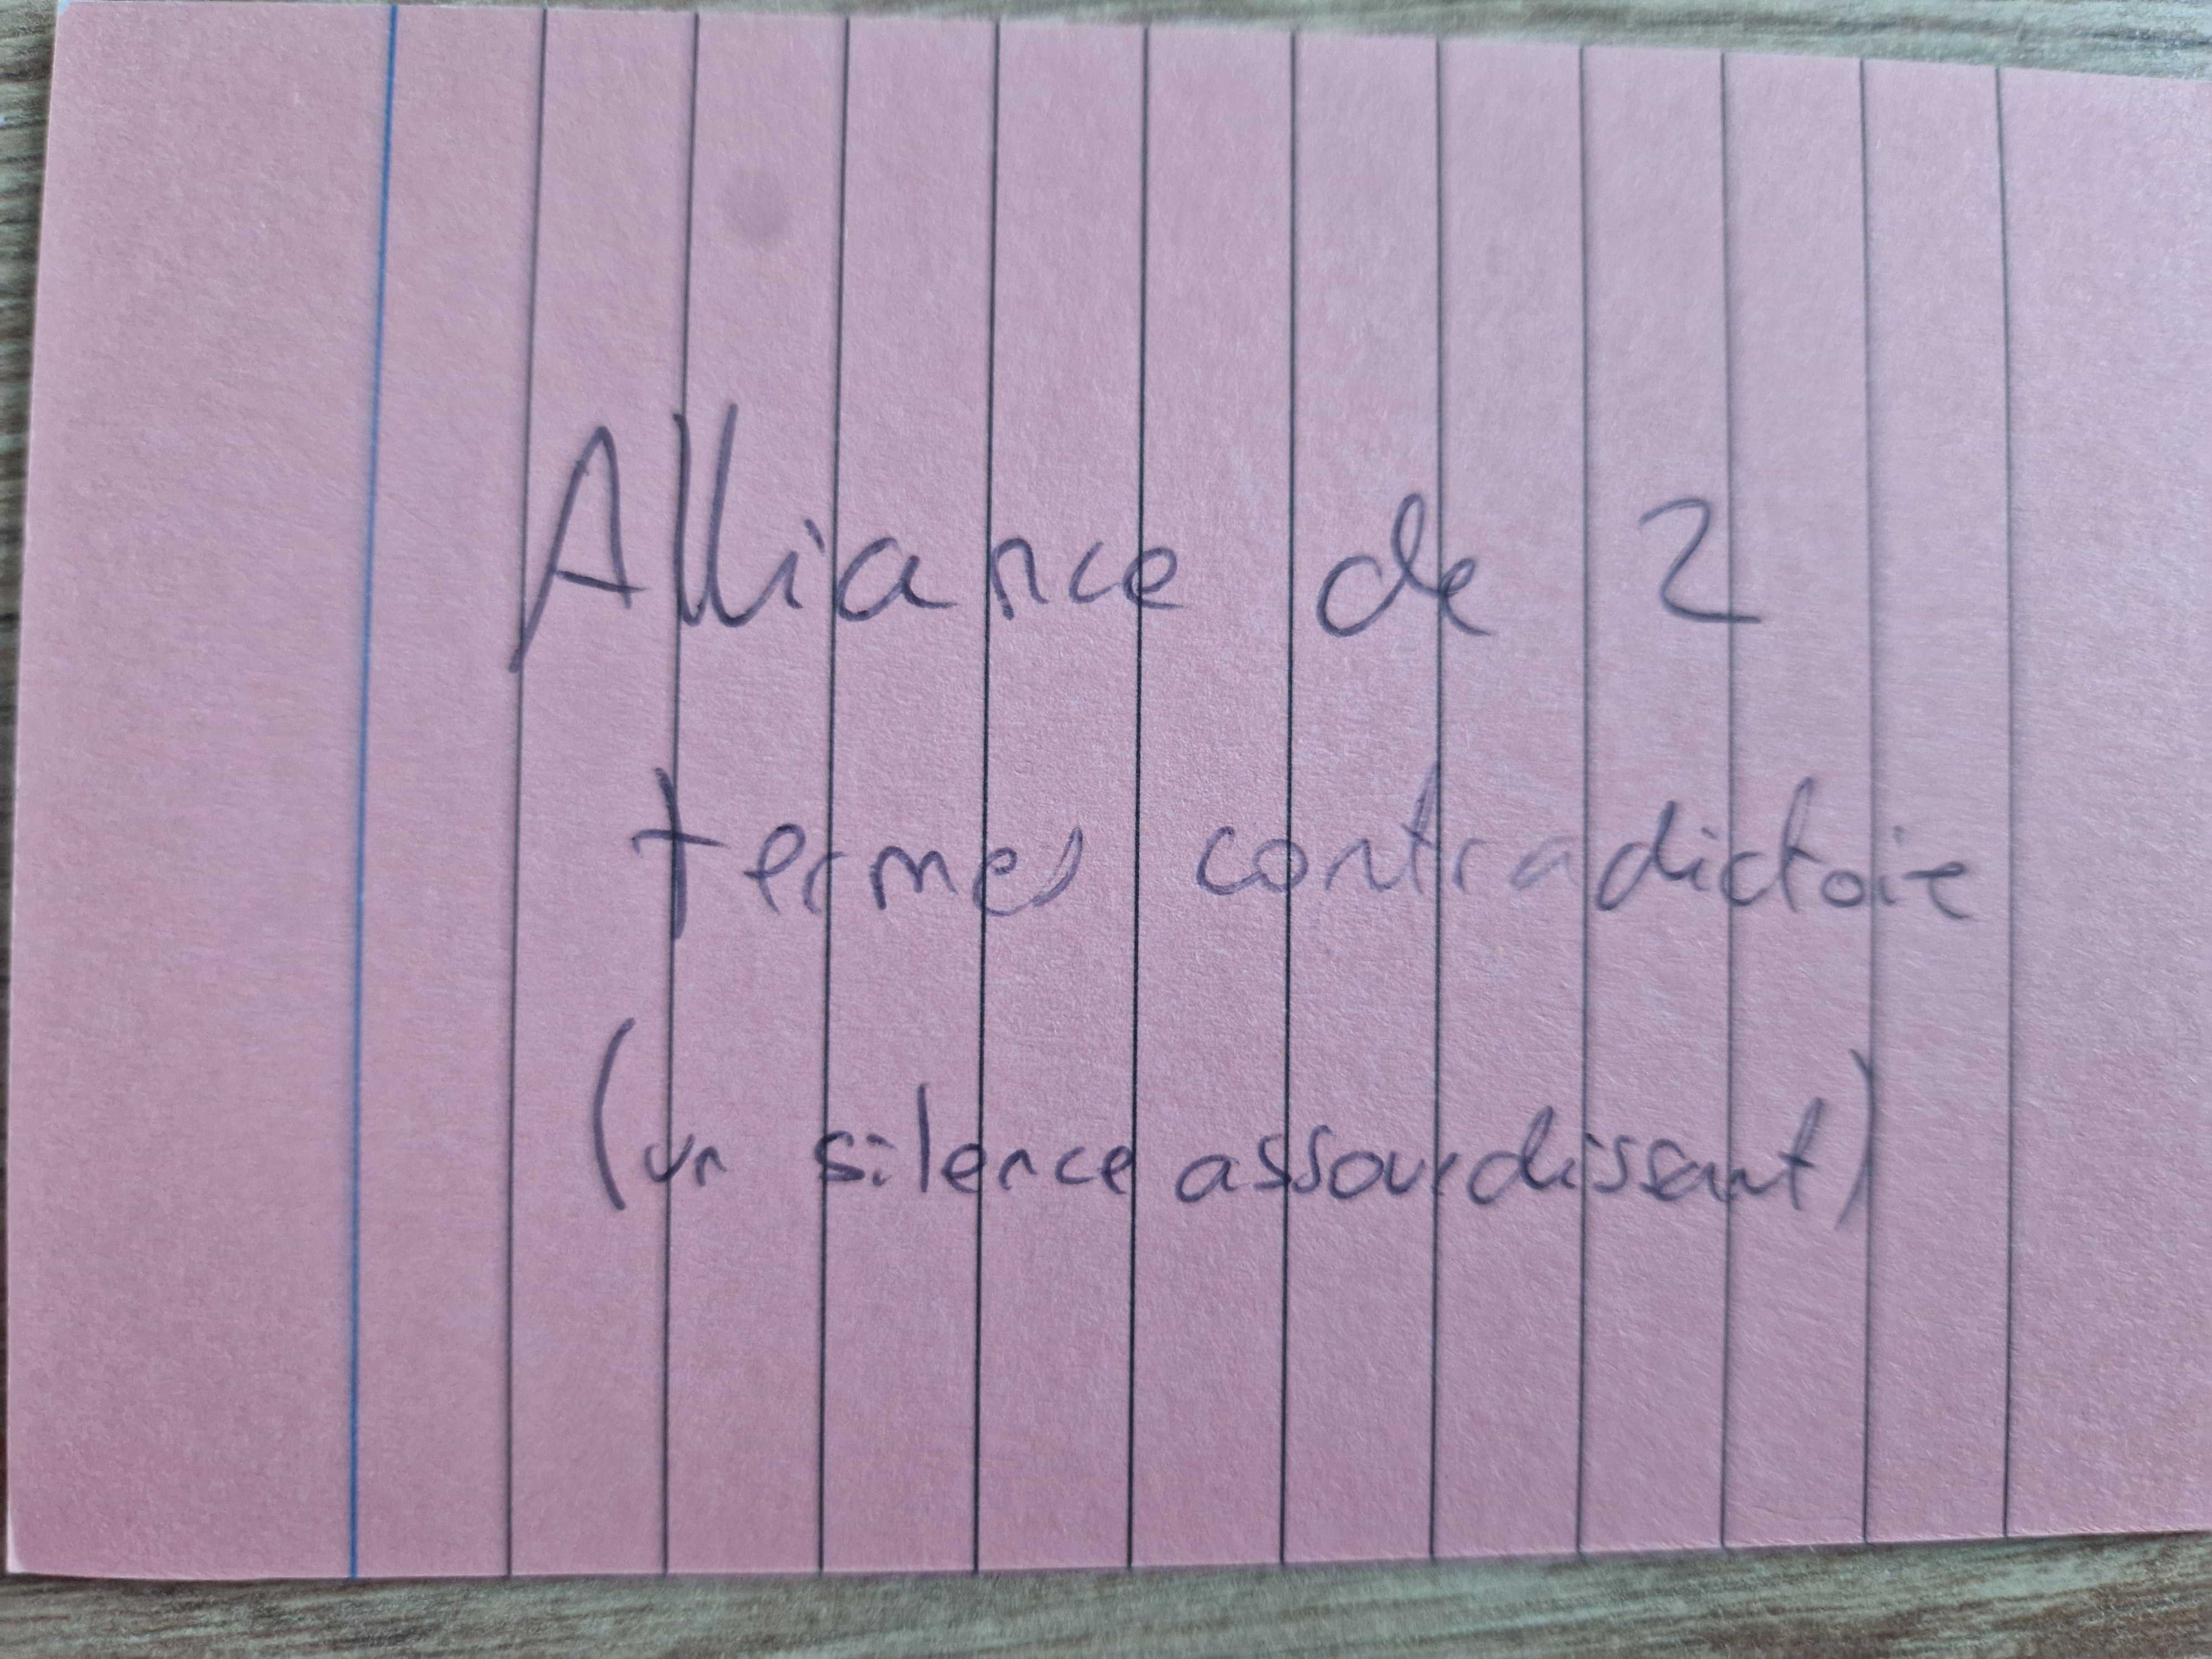 Alliance de 2
termes contradictoire
(un silence assourdissant)